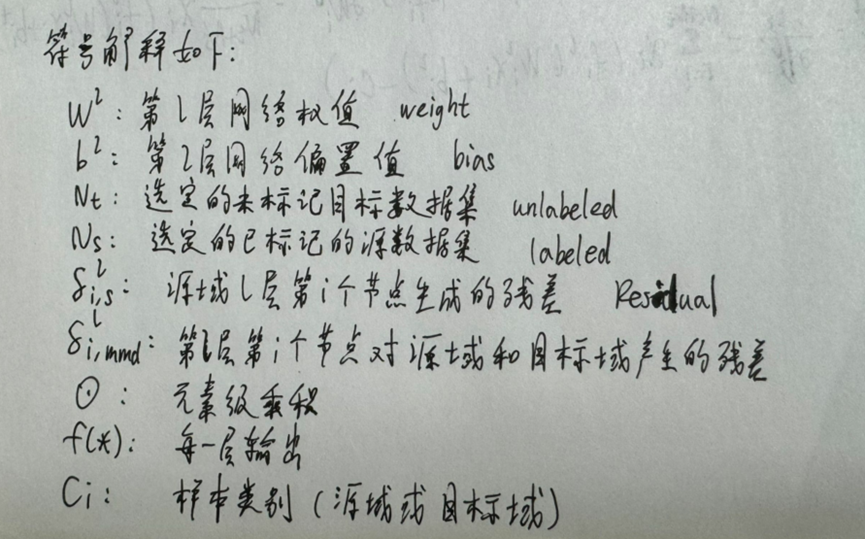 符号解释如下:
W^l: 第l层网络权值 weight
b^l: 第l层网络偏置值 bias
Nt: 选定的未标记目标数据集 unlabeled
Ns: 选定的已标记的源数据集 labeled
δ^l_{i,s}: 源域l层第i个节点生成的残差 Residual
δ^l_{i,mmd}: 第l层第i个节点对源域和目标域产生的残差
⊙: 元素级乘积
f(*): 每一层输出
Ci: 样本类别(源域或目标域)